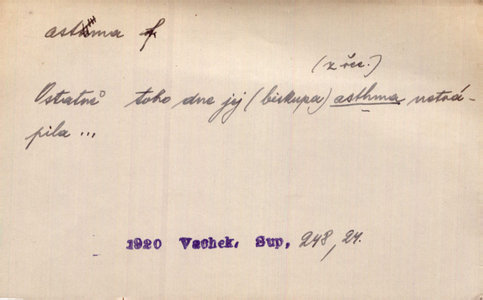 asthma f
(z řec.)
Ostatně toho dne jej (biskupa) asthma netrá-
pila ...
1920 Vachek, Sup, 248, 24.